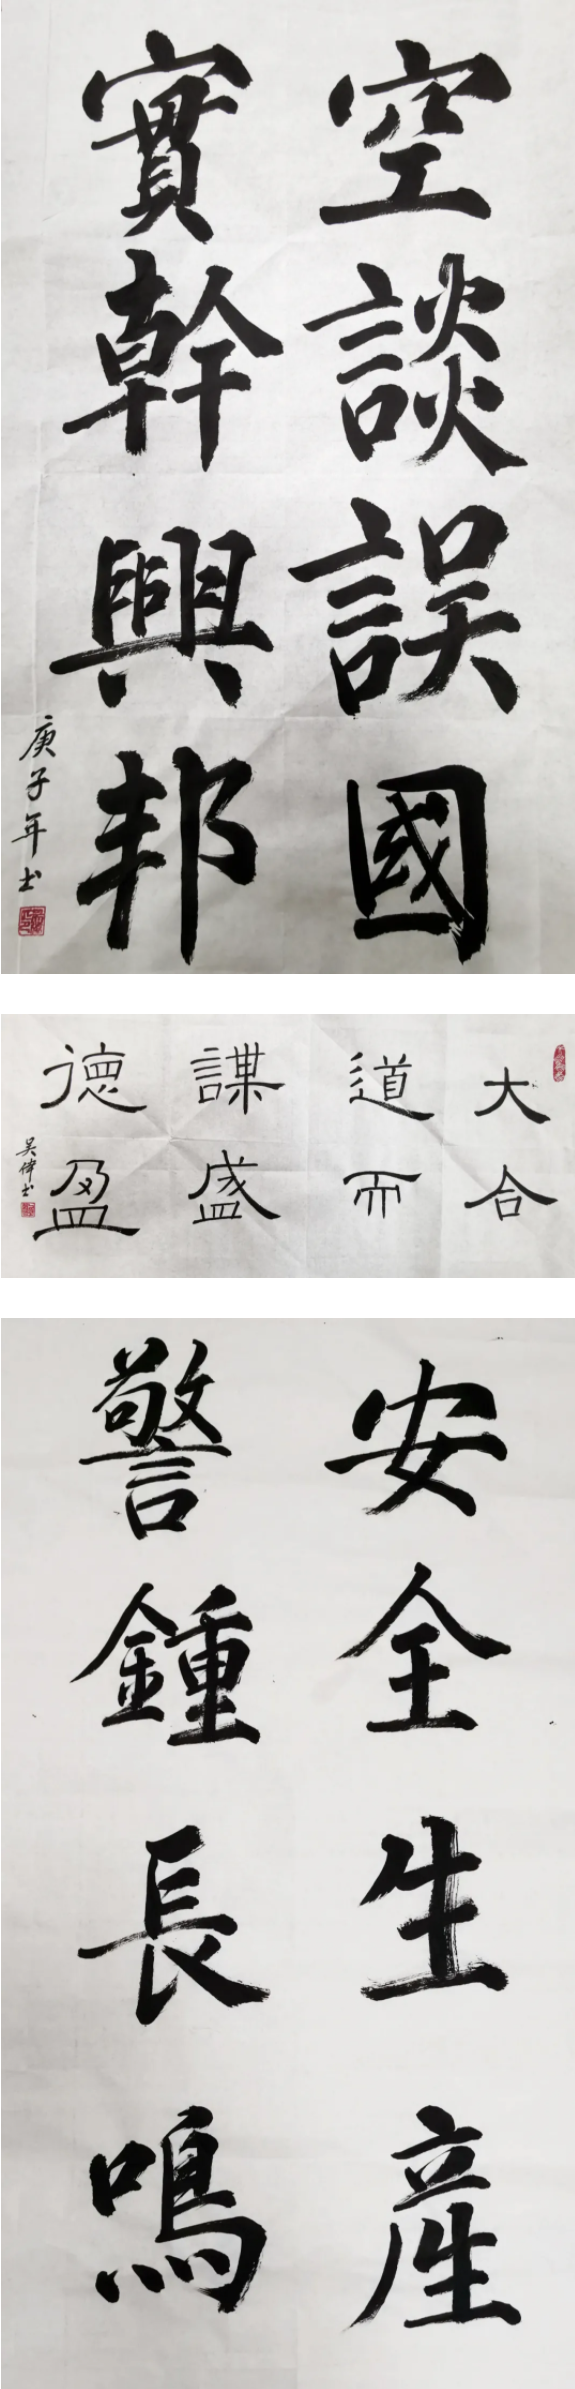 空談誤國
實幹興邦
庚子年士
大合
道而
謀盛
德盈
吴偉士
安全生產
警鍾長鳴